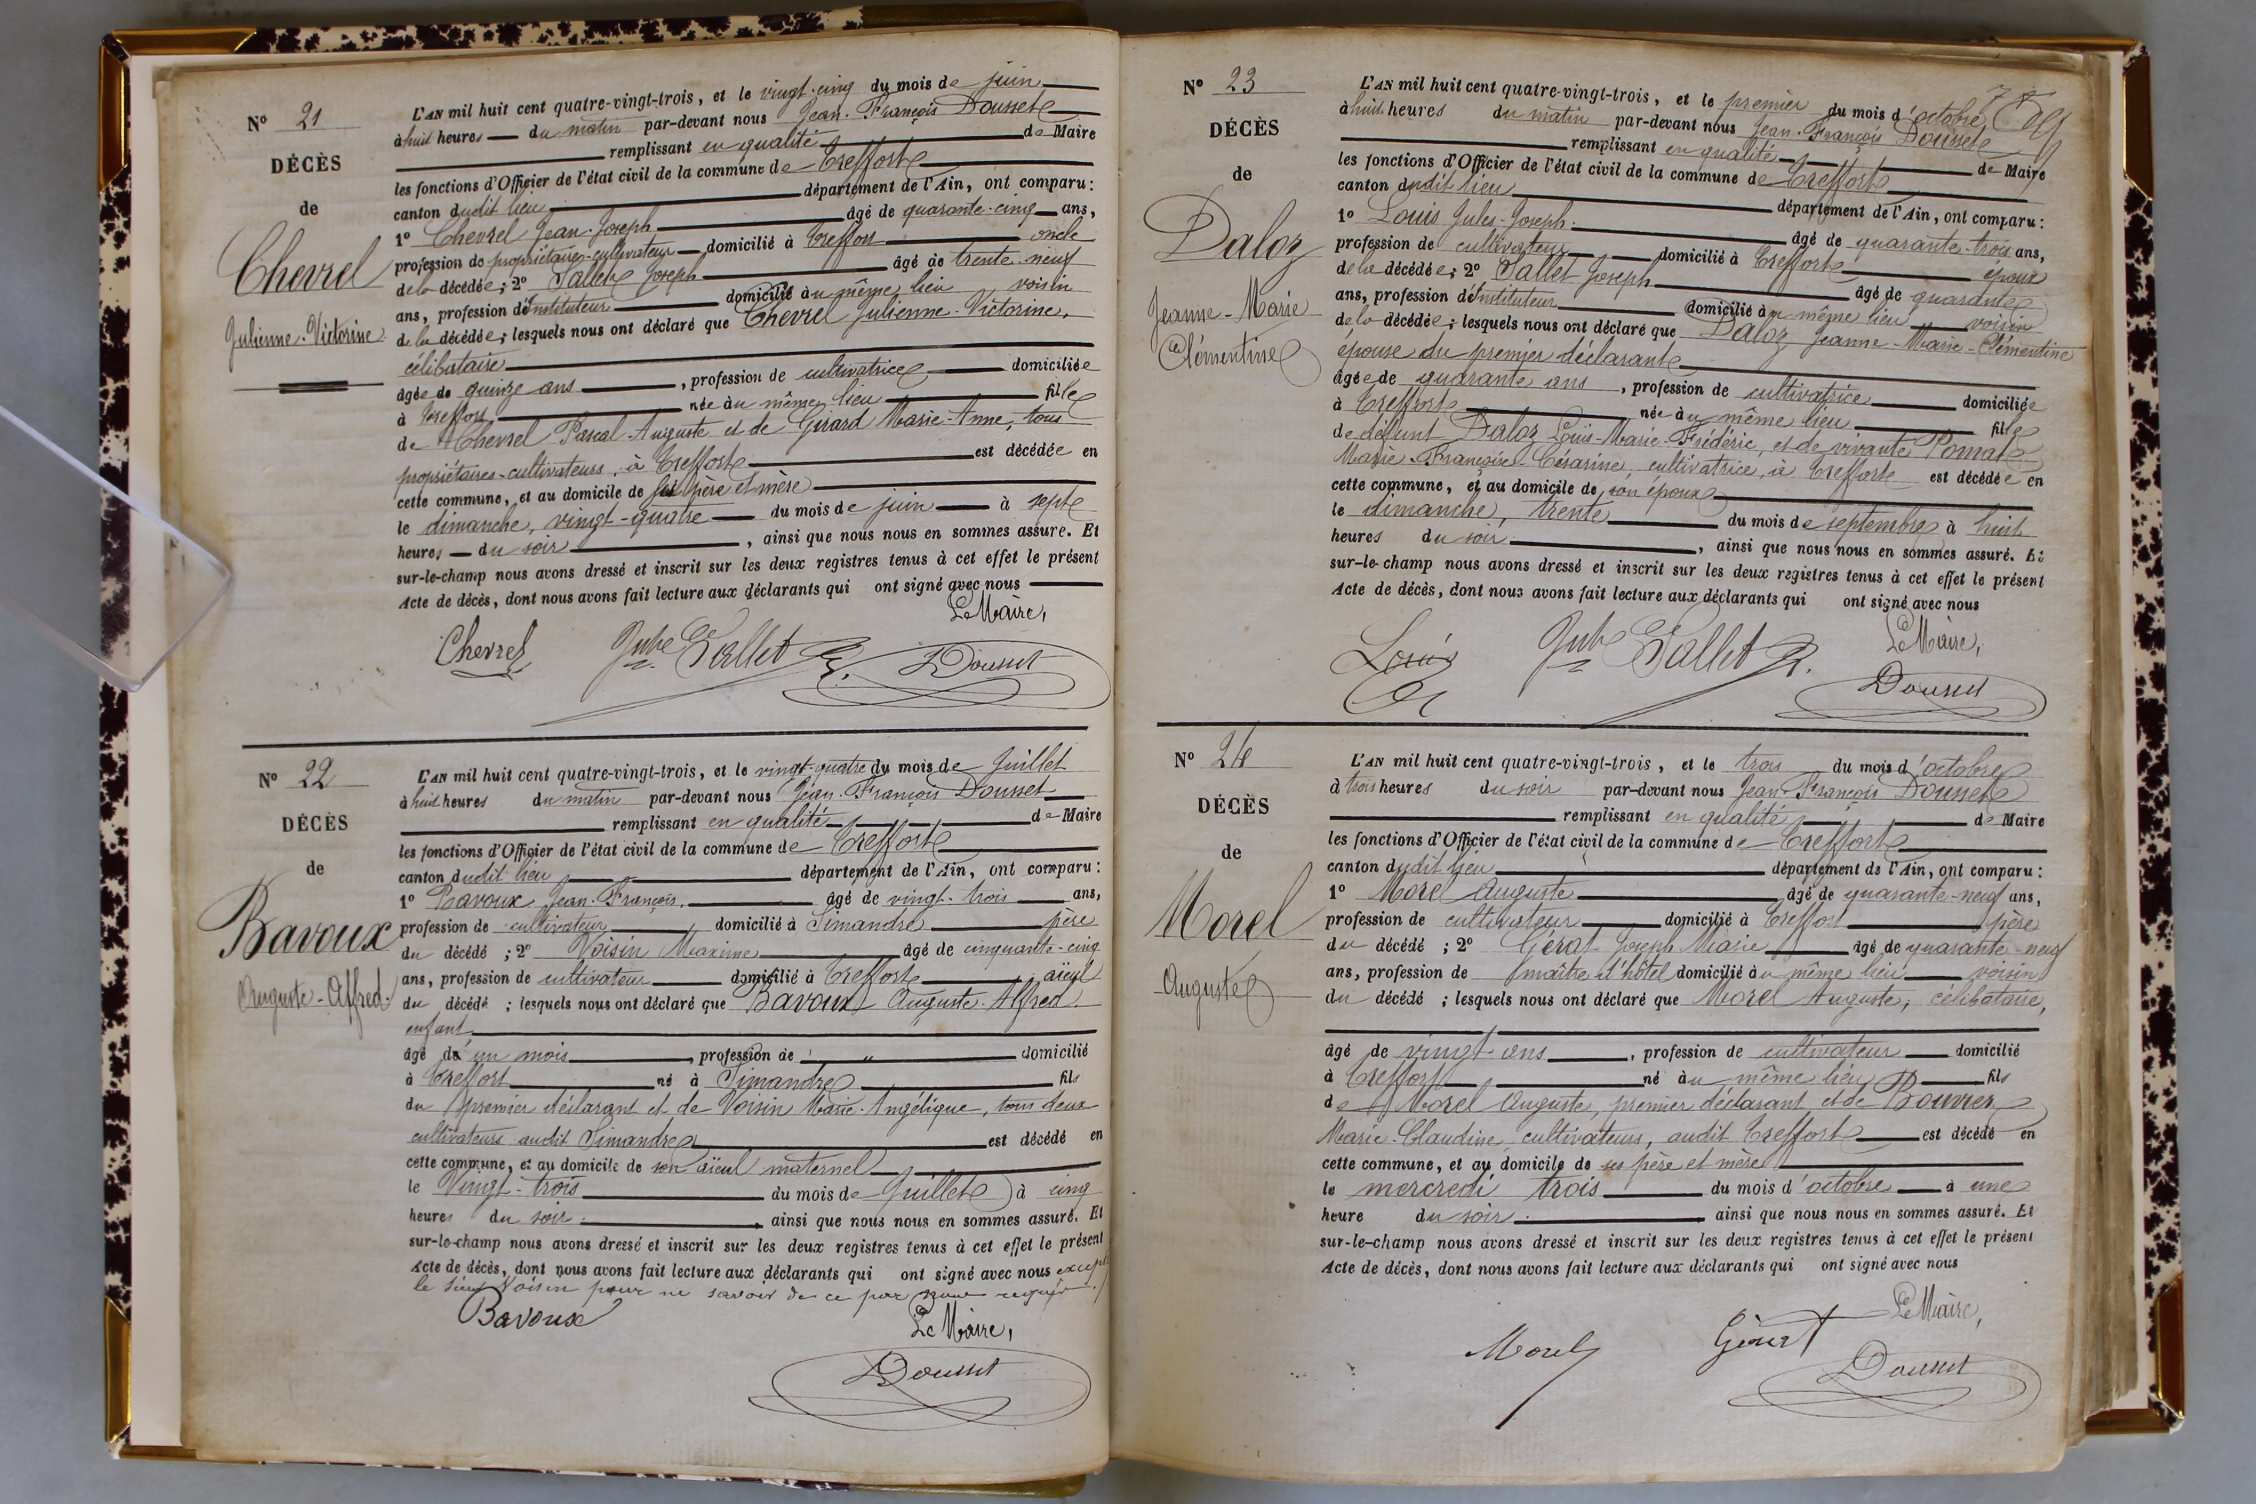 Nº 21
DÉCÈS
de
Chevrel
Julienne-Victorine
L'AN mil huit cent quatre-vingt-trois, et le vingt-cinq du mois de juin
à huit heures du matin par-devant nous Jean-François Dousset
remplissant en qualité de Maire
les fonctions d'Officier de l'état civil de la commune de Treffort
canton dudit lieu département de l'Ain, ont comparu :
1º Chevrel Jean-Joseph âgé de quarante-cinq ans,
profession de propriétaire-cultivateur domicilié à Treffort oncle
de la décédée ; 2º Sallet Joseph âgé de trente-neuf
ans, profession d'instituteur domicilié au même lieu voisin
de la décédée ; lesquels nous ont déclaré que Chevrel Julienne-Victorine,
célibataire
âgée de quinze ans, profession de cultivatrice domiciliée
à Treffort née au même lieu fille
de Chevrel Pascal-Auguste et de Girard Marie-Anne, tous
propriétaires-cultivateurs, à Treffort est décédée en
cette commune, et au domicile de ses père et mère
le dimanche, vingt-quatre du mois de juin à sept
heures du soir, ainsi que nous nous en sommes assuré. Et
sur-le-champ nous avons dressé et inscrit sur les deux registres tenus à cet effet le présent
Acte de décès, dont nous avons fait lecture aux déclarants qui ont signé avec nous
Le Maire,
Chevrel Sallet Dousset
Nº 22
DÉCÈS
de
Bavoux
Auguste-Alfred
L'AN mil huit cent quatre-vingt-trois, et le vingt-quatre du mois de Juillet
à huit heures du matin par-devant nous Jean-François Dousset
remplissant en qualité de Maire
les fonctions d'Officier de l'état civil de la commune de Treffort
canton dudit lieu département de l'Ain, ont comparu :
1º Bavoux Jean-François, âgé de vingt-trois ans,
profession de cultivateur domicilié à Simandre père
du décédé ; 2º Voisin Maxime âgé de cinquante-cinq
ans, profession de cultivateur domicilié à Treffort aïeul
du décédé ; lesquels nous ont déclaré que Bavoux Auguste-Alfred
enfant
âgé d'un mois, profession de " domicilié
à Treffort né à Simandre fils
du premier déclarant et de Voisin Marie-Angélique, tous deux
cultivateurs audit Simandre est décédé en
cette commune, et au domicile de son aïeul maternel
le Vingt-trois du mois de Juillet à cinq
heures du soir, ainsi que nous nous en sommes assuré. Et
sur-le-champ nous avons dressé et inscrit sur les deux registres tenus à cet effet le présent
Acte de décès, dont nous avons fait lecture aux déclarants qui ont signé avec nous excepté
le sieur Voisin pour ne savoir de ce par nous requis.
Bavoux Le Maire,
Dousset
Nº 23
DÉCÈS
de
Daloz
Jeanne-Marie
Clémentine
L'AN mil huit cent quatre-vingt-trois, et le premier du mois d'octobre
à huit heures du matin par-devant nous Jean-François Dousset
remplissant en qualité de Maire
les fonctions d'Officier de l'état civil de la commune de Treffort
canton dudit lieu département de l'Ain, ont comparu :
1º Louis Jules-Joseph âgé de quarante-trois ans,
profession de cultivateur domicilié à Treffort époux
de la décédée ; 2º Sallet Joseph âgé de quarante
ans, profession d'instituteur domicilié au même lieu voisin
de la décédée ; lesquels nous ont déclaré que Daloz Jeanne-Marie-Clémentine
épouse du premier déclarant
âgée de quarante ans, profession de cultivatrice domiciliée
à Treffort née au même lieu fille
de défunt Daloz Louis-Marie-Frédéric, et de vivante
Marie-Françoise-Césarine, cultivatrice, à Treffort est décédée en
cette commune, et au domicile de son époux
le dimanche, trente du mois de septembre à huit
heures du soir, ainsi que nous nous en sommes assuré. Et
sur-le-champ nous avons dressé et inscrit sur les deux registres tenus à cet effet le présent
Acte de décès, dont nous avons fait lecture aux déclarants qui ont signé avec nous
Le Maire,
Louis Sallet Dousset
Nº 24
DÉCÈS
de
Morel
Auguste
L'AN mil huit cent quatre-vingt-trois, et le trois du mois d'octobre
à trois heures du soir par-devant nous Jean François Dousset
remplissant en qualité de Maire
les fonctions d'Officier de l'état civil de la commune de Treffort
canton dudit lieu département de l'Ain, ont comparu :
1º Morel Auguste âgé de quarante-neuf ans,
profession de cultivateur domicilié à Treffort père
du décédé ; 2º Gérat Joseph Marie âgé de quarante-neuf
ans, profession de maître d'hôtel domicilié au même lieu voisin
du décédé ; lesquels nous ont déclaré que Morel Auguste, célibataire,
âgé de vingt-ans, profession de cultivateur domicilié
à Treffort né au même lieu fils
de Morel Auguste, premier déclarant et de Bouvier
Marie-Claudine cultivateurs, audit Treffort est décédé en
cette commune, et au domicile de ses père et mère
le mercredi trois du mois d'octobre à une
heure du soir. ainsi que nous nous en sommes assuré. Et
sur-le-champ nous avons dressé et inscrit sur les deux registres tenus à cet effet le présent
Acte de décès, dont nous avons fait lecture aux déclarants qui ont signé avec nous
Le Maire,
Morel Gérat Dousset